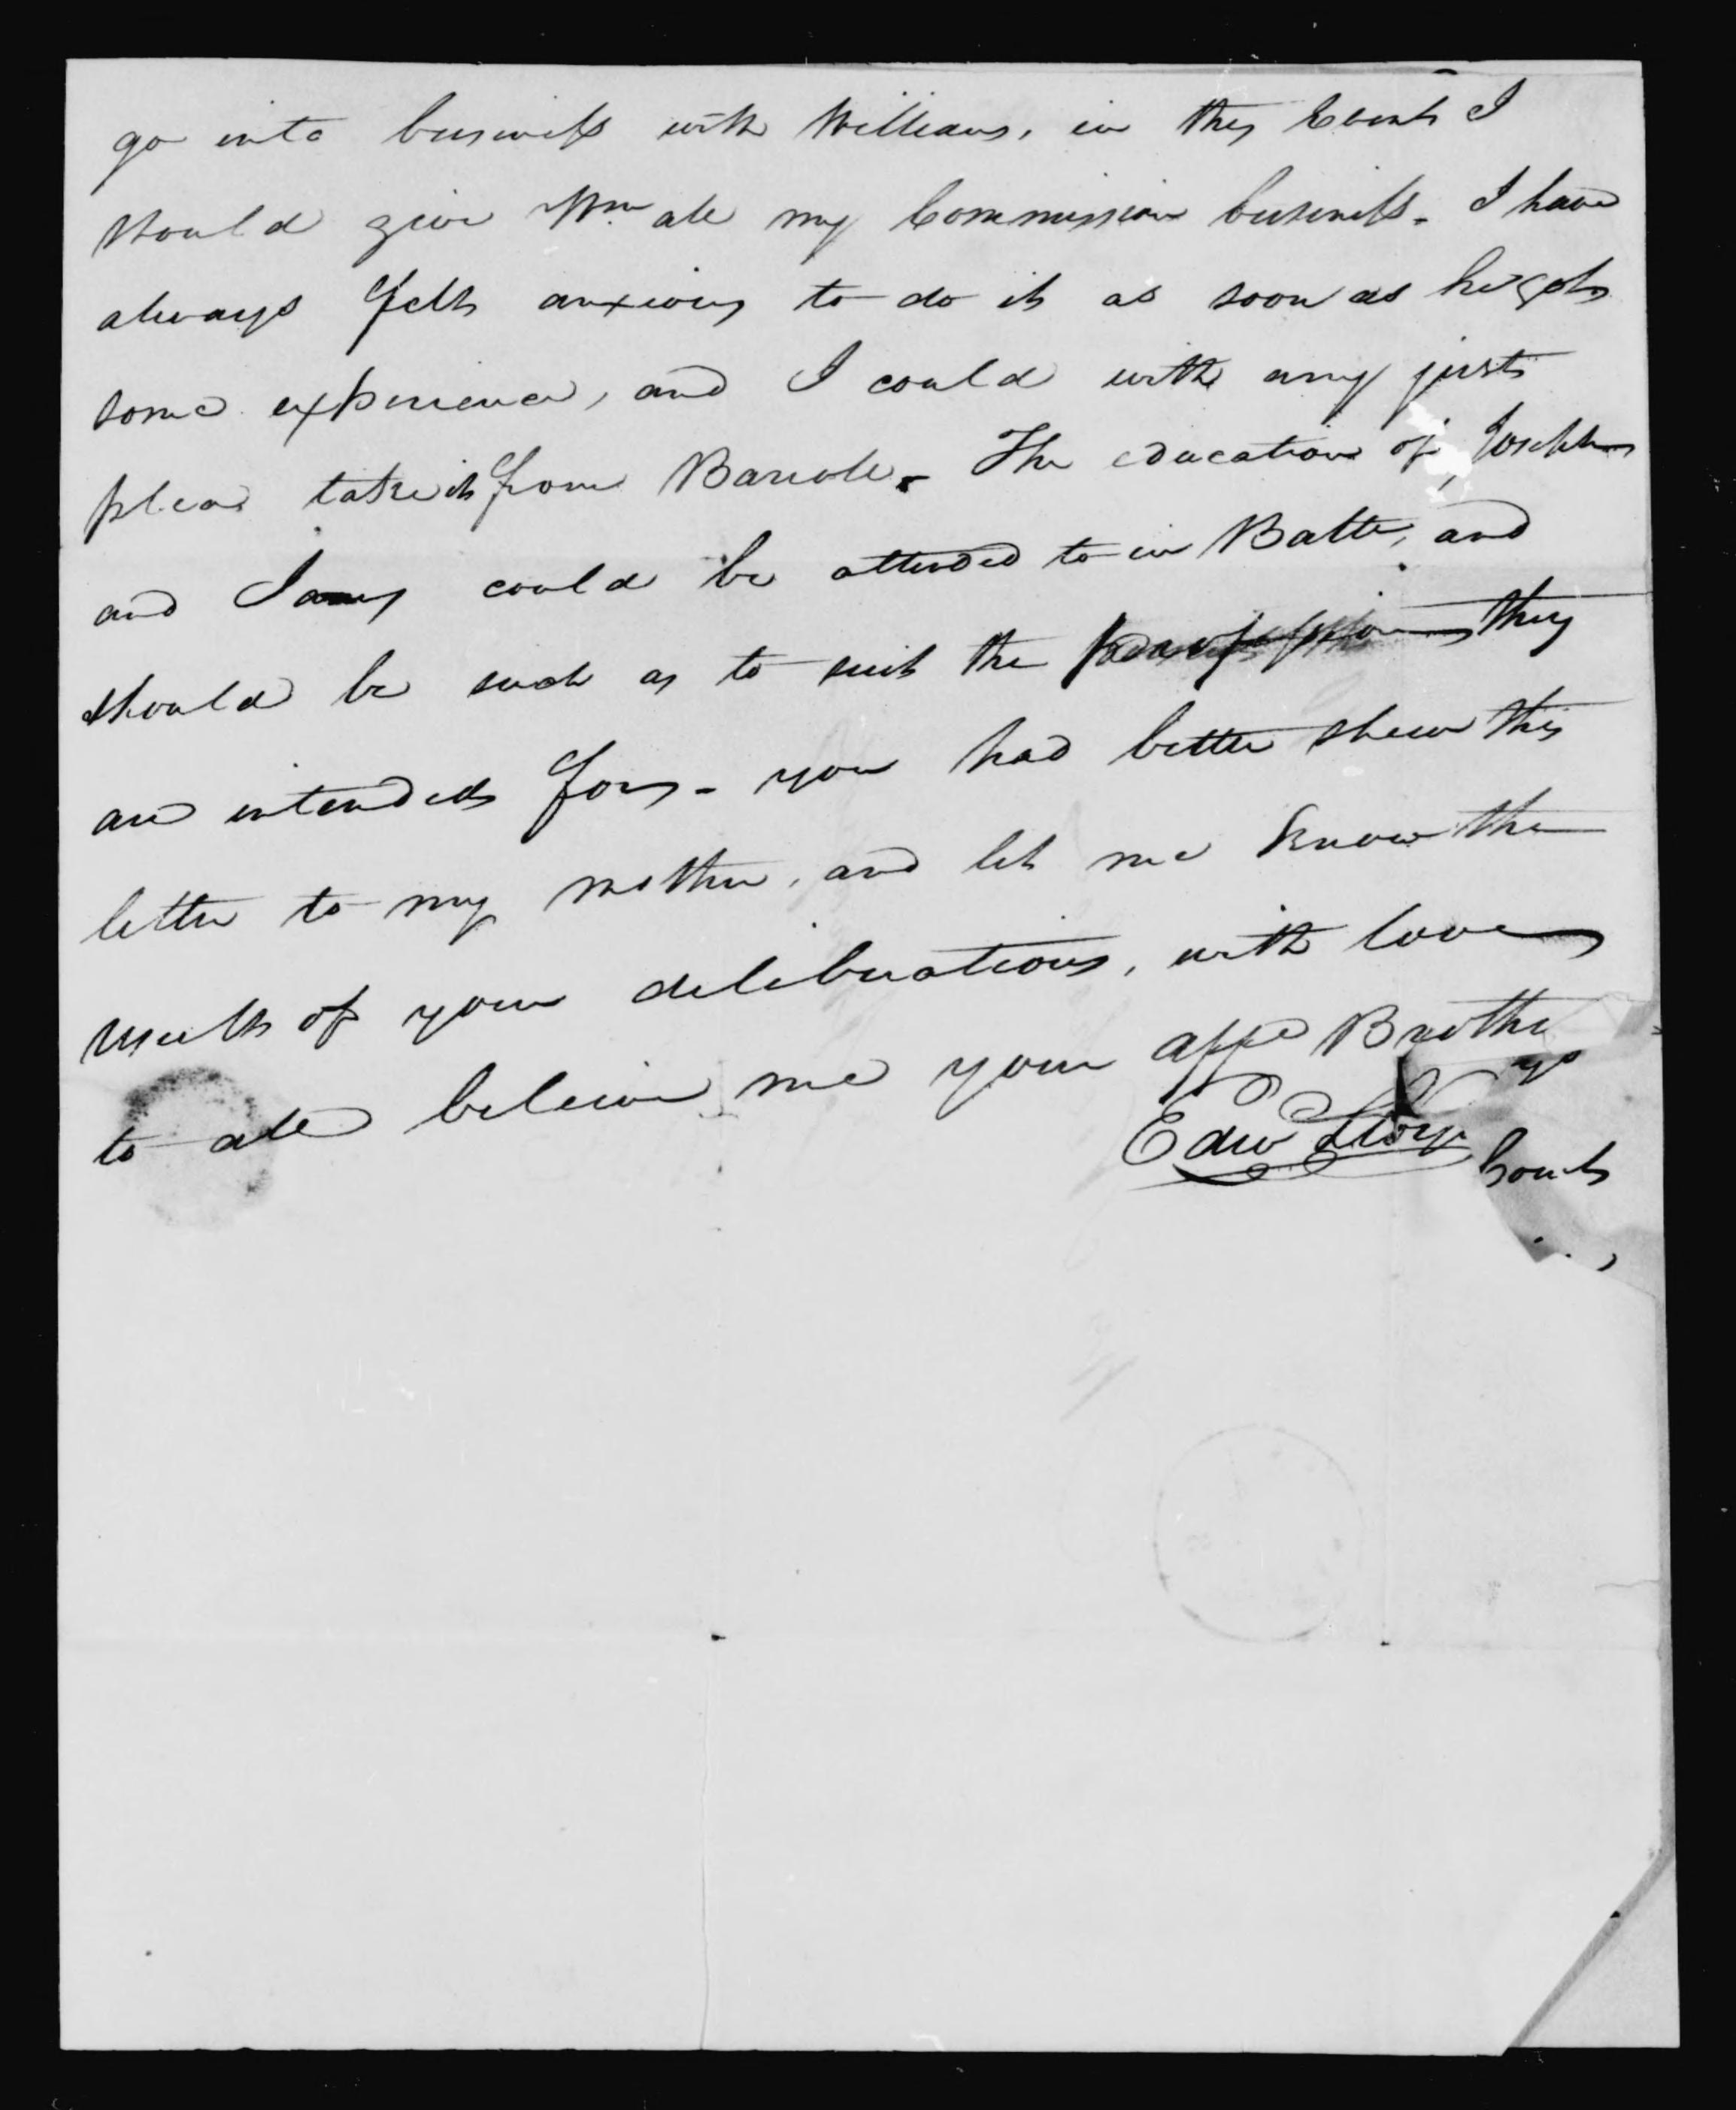 go into business with William, in this Event I
should give Wm all my Commission business - I have
always felt anxious to do it as soon as he got
some experience, and I could with any just
plea take it from Barroll - The education of Joseph
and James could be attended to in Balto, and
should be such as to suit the they
are intended for - you had better shew this
letter to my mother, and let me know the
result of your deliberations, with love
to all believe me your affe Brother
Edw Lloyd